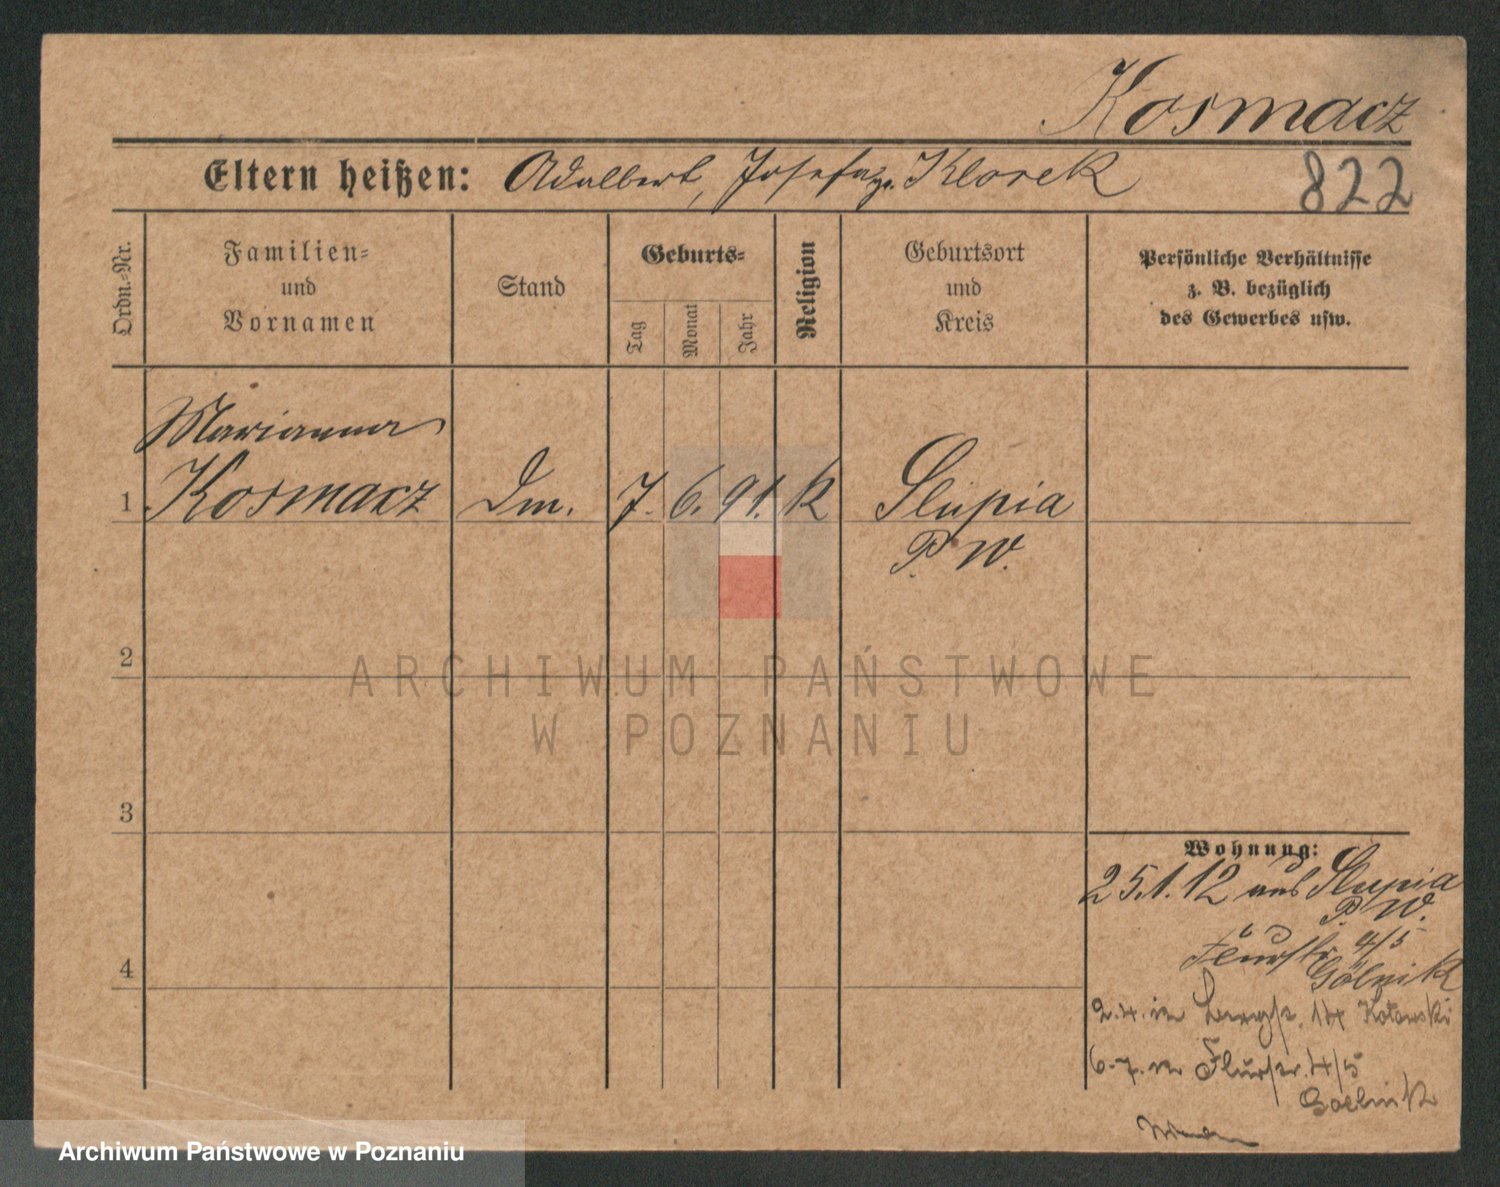 Kosmacz
Eltern heißen: Adalbert, Josefa g. Klorek
822
Ordn.-Nr.
Familien-
und
Vornamen
Stand
Geburts-
Tag
Monat
Jahr
Religion
Geburtsort
und
Kreis
Persönliche Verhältnisse
z. B. bezüglich
des Gewerbes usw.
Marianna
1 Kosmacz Dm. 7. 6. 91. K Slupia
P. W.
2
ARCHIWUM PAŃSTWOWE
W POZNANIU
3
Wohnung:
25.1.12 aus Slupia
P. W.
Flurstr. 4/5
Gölnik
4
2.4. in Bergstr. 14 Kotowski
6.7. in Flurstr. 4/5
Goelnik
Archiwum Państwowe w Poznaniu